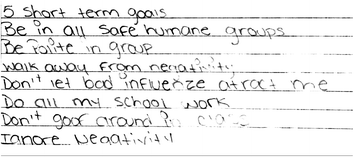 5 Short term goals
Be in all safe humane groups
Be Polite in group
Walk away from negativity
Don't let bad influenze atract me
Do all my school work
Don't goof around in class
Ignore Negativity